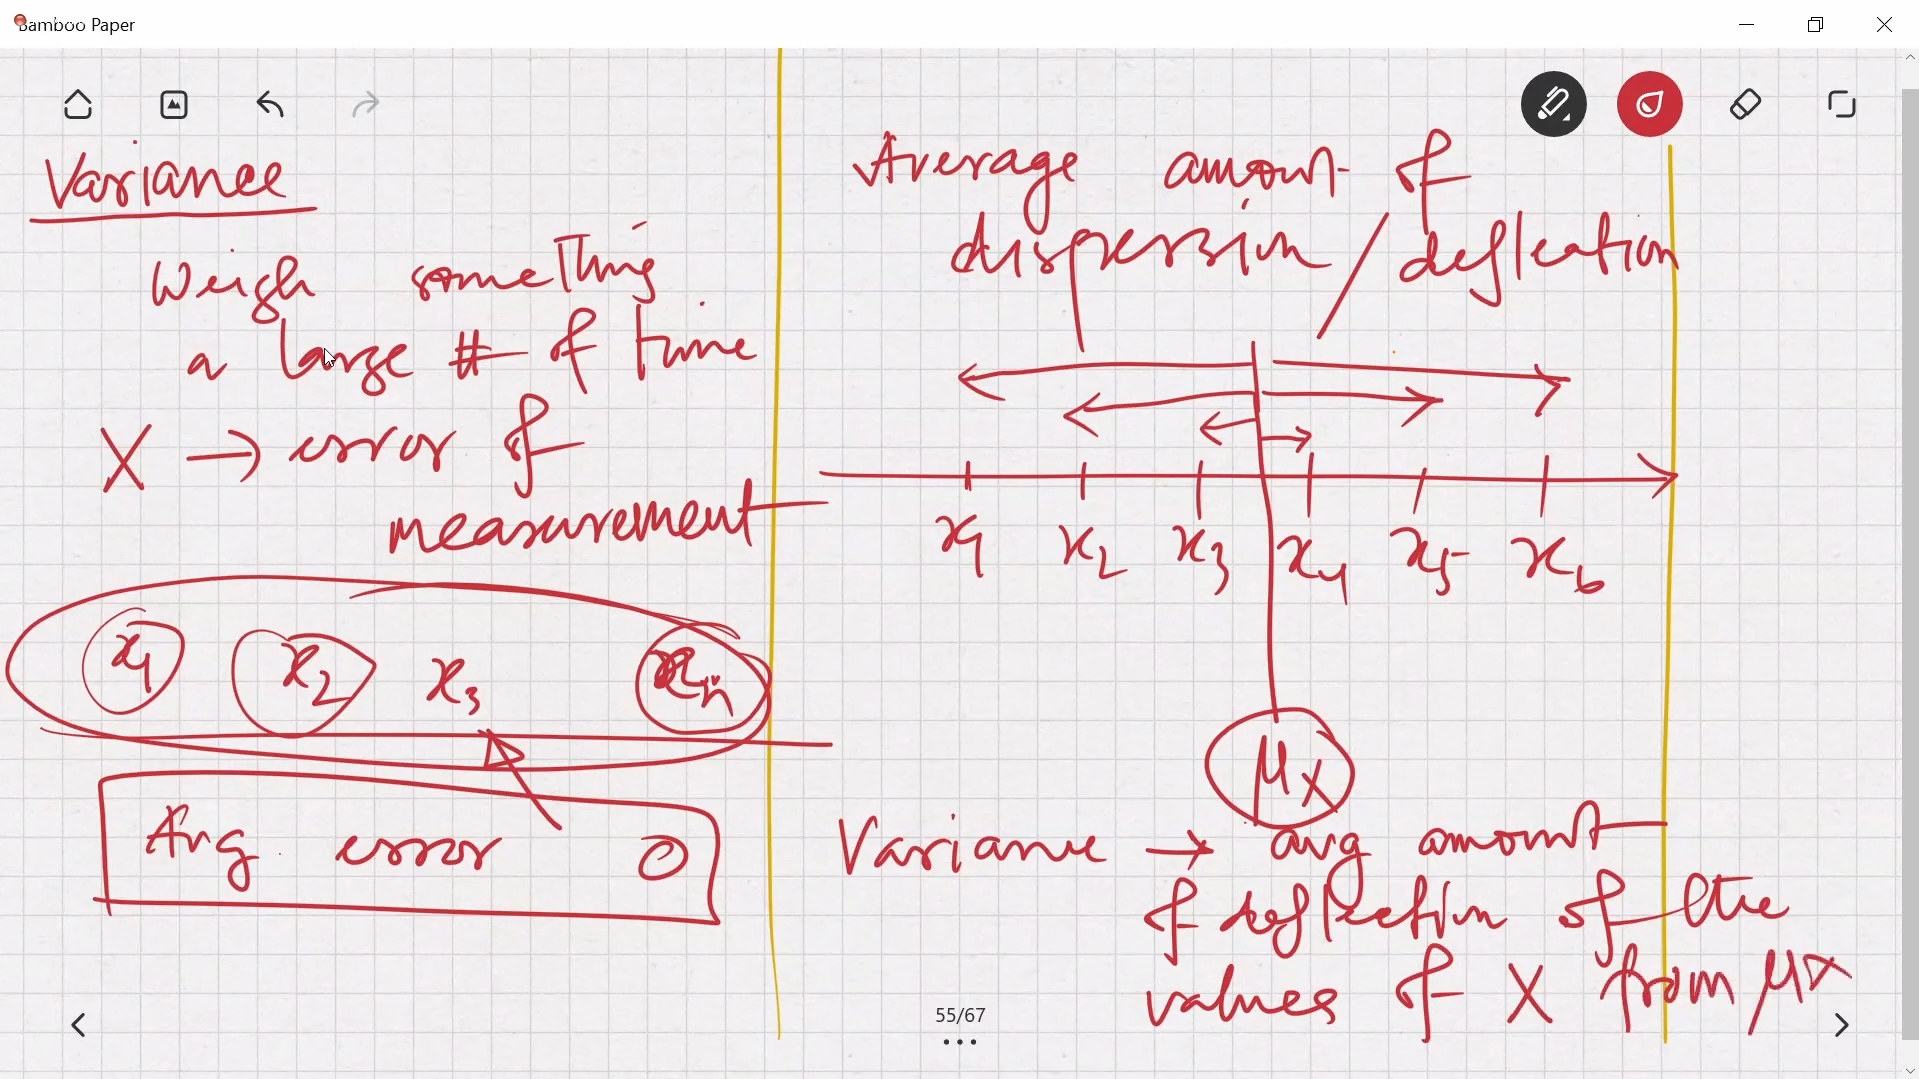 Bamboo Paper
Variance
Weigh something
a large # of time
X → error of
measurement
x1 x2 x3 xn
Avg error 0
Average amount of
dispersion / deflection
x1 x2 x3 x4 x5 x6
μX
Variance → avg amount
of deflection of the
values of X from μX
55/67